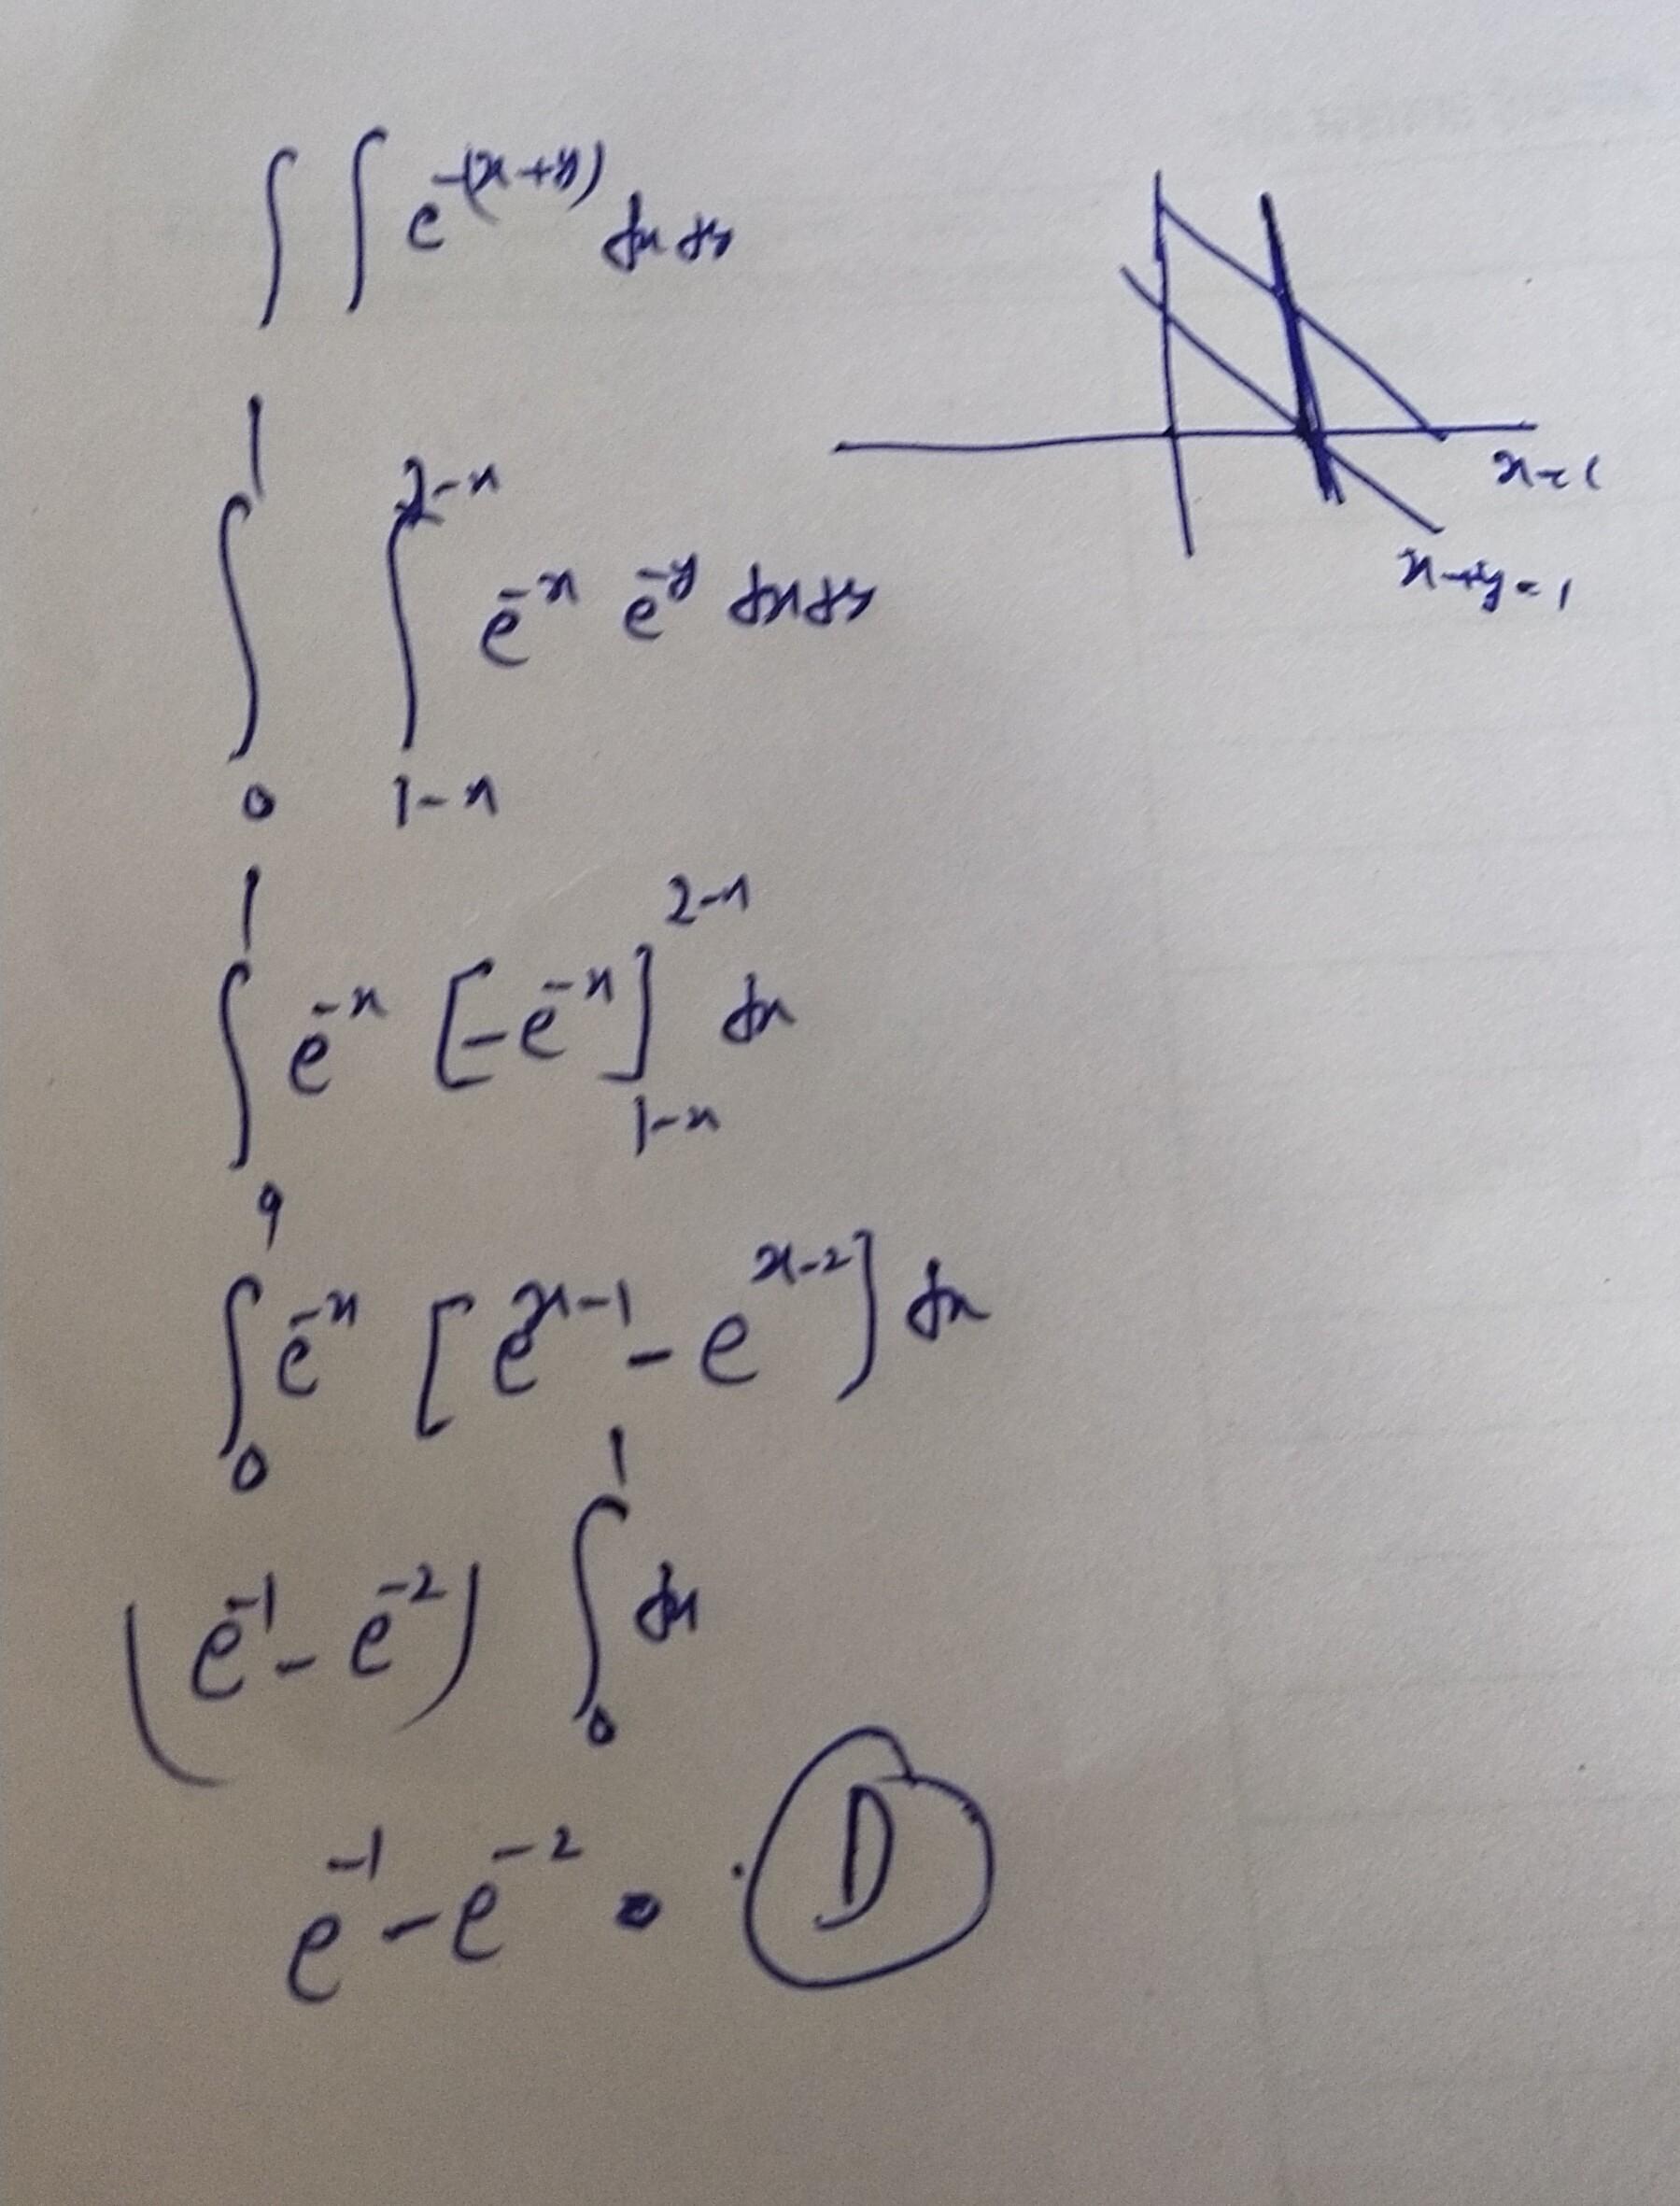 ∫ ∫ e^-(x+y) dx dy
x=1
x+y=1
∫_0^1 ∫_{1-x}^{2-x} e^-x e^-y dx dy
∫_0^1 e^-x [-e^-x]_{1-x}^{2-x} dx
∫_0^1 e^-x [e^{x-1} - e^{x-2}] dx
(e^-1 - e^-2) ∫_0^1 dx
e^-1 - e^-2 . D